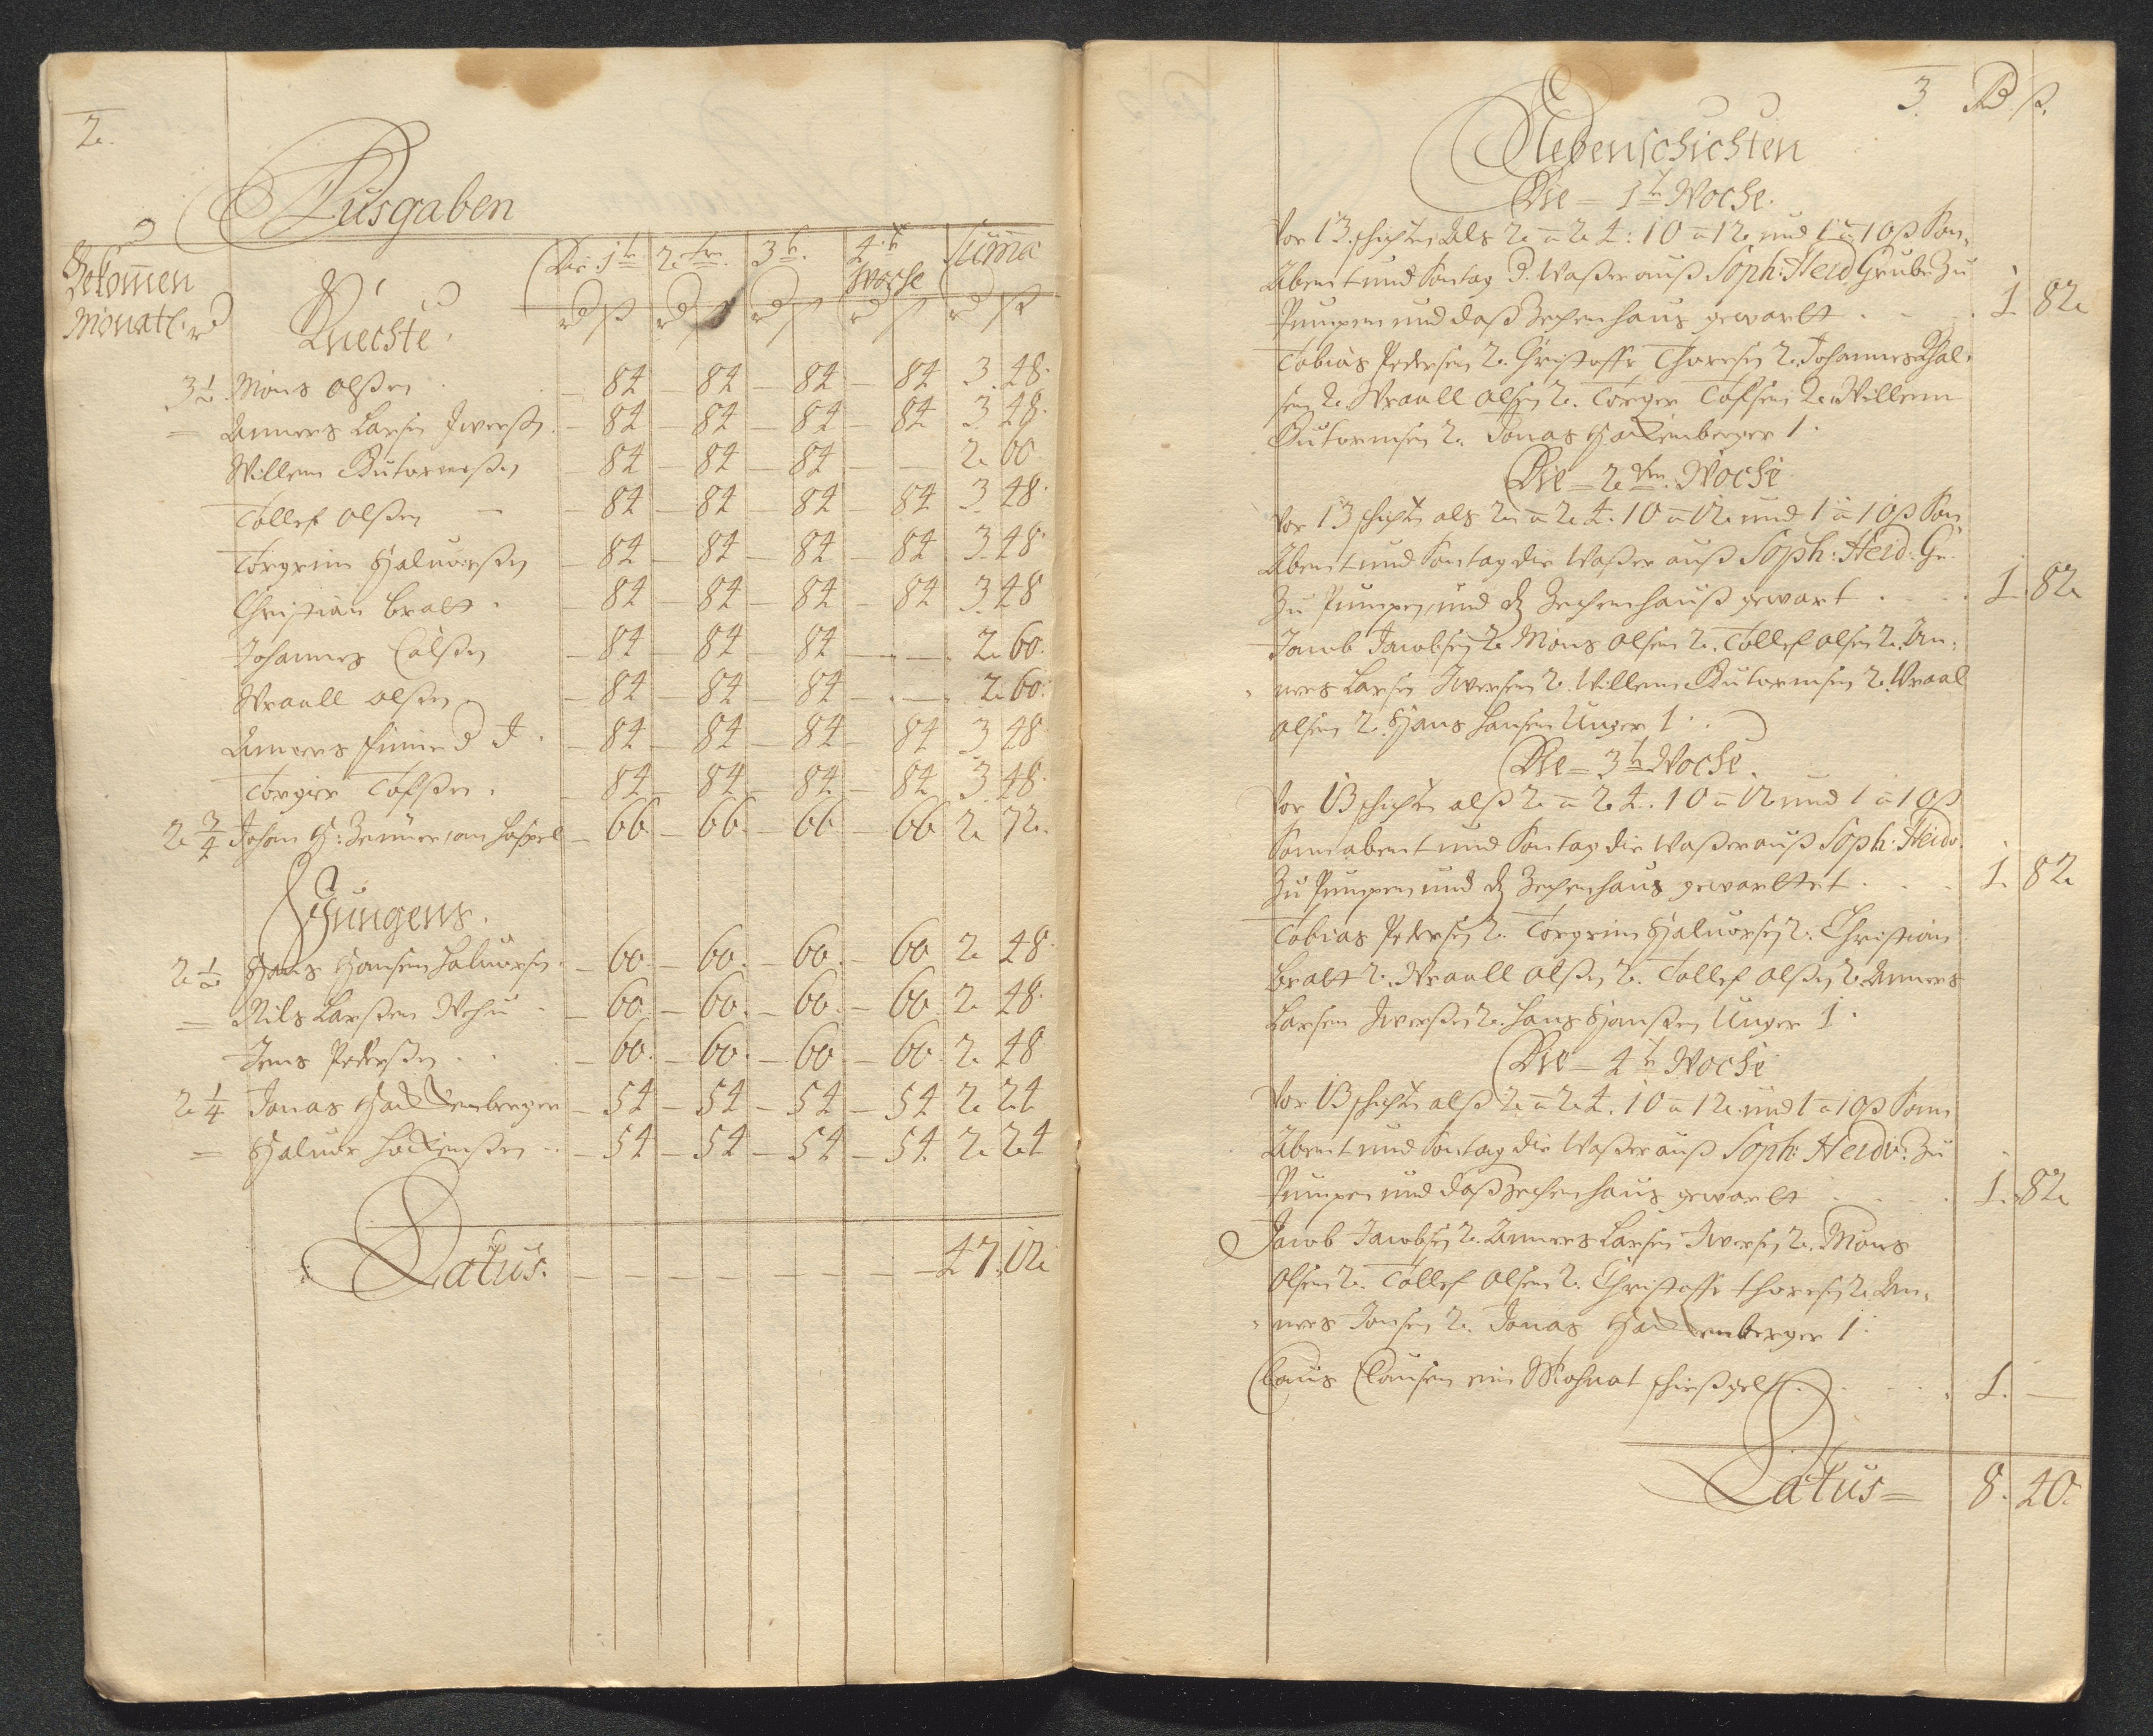 2.
Ausgaben
Bekom̄en Monatl. rd
Knechte.
Die 1te 2ten 3te 4te Woche Sum̄a
rd ß rd ß rd ß rd ß rd ß
3½ Mons Olßen – 84 – 84 – 84 – 84 3. 48.
= Anners Larsen Iverß. – 84 – 84 – 84 – 84 3. 48.
Willem Gutormßen – 84 – 84 – 84 – – 2. 60.
Tollef Olßen – 84 – 84 – 84 – 84 3. 48.
Torgrim Halvorßen – 84 – 84 – 84 – 84 3. 48.
Christian Bralt – 84 – 84 – 84 – 84 3. 48
Johannes Calßen – 84 – 84 – 84 – – 2. 60.
Wraall Olßen – 84 – 84 – 84 – – 2. 60.
Anners – 84 – 84 – 84 – 84 3 48
Torgier Tofßen – 84 – 84 – 84 – 84 3. 48.
2¾ Johan H: am Haspel – 66 – 66 – 66 – 66 2 72.
Jungens.
2½ Hans Hansen Halvorsen – 60. – 60. – 60. – 60 2. 48.
= Nils Larßen – 60. – 60. – 60. – 60 2. 48.
Jens Pederßen – 60. – 60. – 60 – 60. 2. 48
2¼ Jonas Hackenberger – 54 – 54 – 54 – 54 2. 24
= Halvor – 54 – 54 – 54 – 54 2. 24
Latus. – 47. 12
3. Rd ß.
Nebenschichten
Die = 1te Woche.
Vor 13 schichten Als 2 a 24: 10 a 12 und 1 a 10 ß Son,
Abent und Sontag d. Waßer auß Soph: Heid Grube Zu
Pumpen und daß Zechenhaus gewarlt . . 1. 82
Tobias Pedersen 2. Christoffer Thoresen 2. Johannes Kal,
sen 2. Wraall Olsen 2. Torger Tofsen 2. Willem
Gutormsen 2. Jonas Hackenberger 1.
Die = 2ten Woche
Vor 13 schichten als 2 a 24. 10 a 12 und 1 a 10 ß Son
Abent und Sontag die Waßer auß Soph: Heid: Gr.
Zu Pumpen, und dz Zechenhauß gewart . . 1. 82
Jacob Jacobsen 2. Mons Olsen 2. Tollef Olsen 2. An,
ners Larsen Iversen 2. Willem Gutormsen 2. Wraal
Olsen 2. Hans Hansen Unger 1.
Die = 3te Woche.
Vor 13 schichten alß 2 a 24. 10 a 12 und 1 a 10 ß
Sonnabent und Sontag die Waßer auß Soph: Heidv.
Zu Pumpen und dz Zechenhaus gewarltet . . 1. 82
Tobias Pedersen 2. Torgrim Halvorsen 2. Christian
Bralt 2. Wraall Olßen 2. Tollef Olßen 2. Anners
Larsen Iverßen 2. Hans Hanßen Unger 1.
Die = 4te Woche
Vor 13 schichten alß 2 a 24. 10 a 12 und 1 a 10 ß Sonn
Abent und Sontag die Waßer auß Soph: Heidv: Zu
Pumpen und daß Zechenhaus gewarlt . . 1. 82
Jacob Jacobsen 2. Anners Larsen Iversen 2. Mons
Olsen 2. Tollef Olsen 2. Christoffer Thoresen 2. An,
ners Jonsen 2. Jonas Hackenberger 1.
Claus Clausen ein Mohnat schießgelt . . 1. –
Latus = 8. 40.